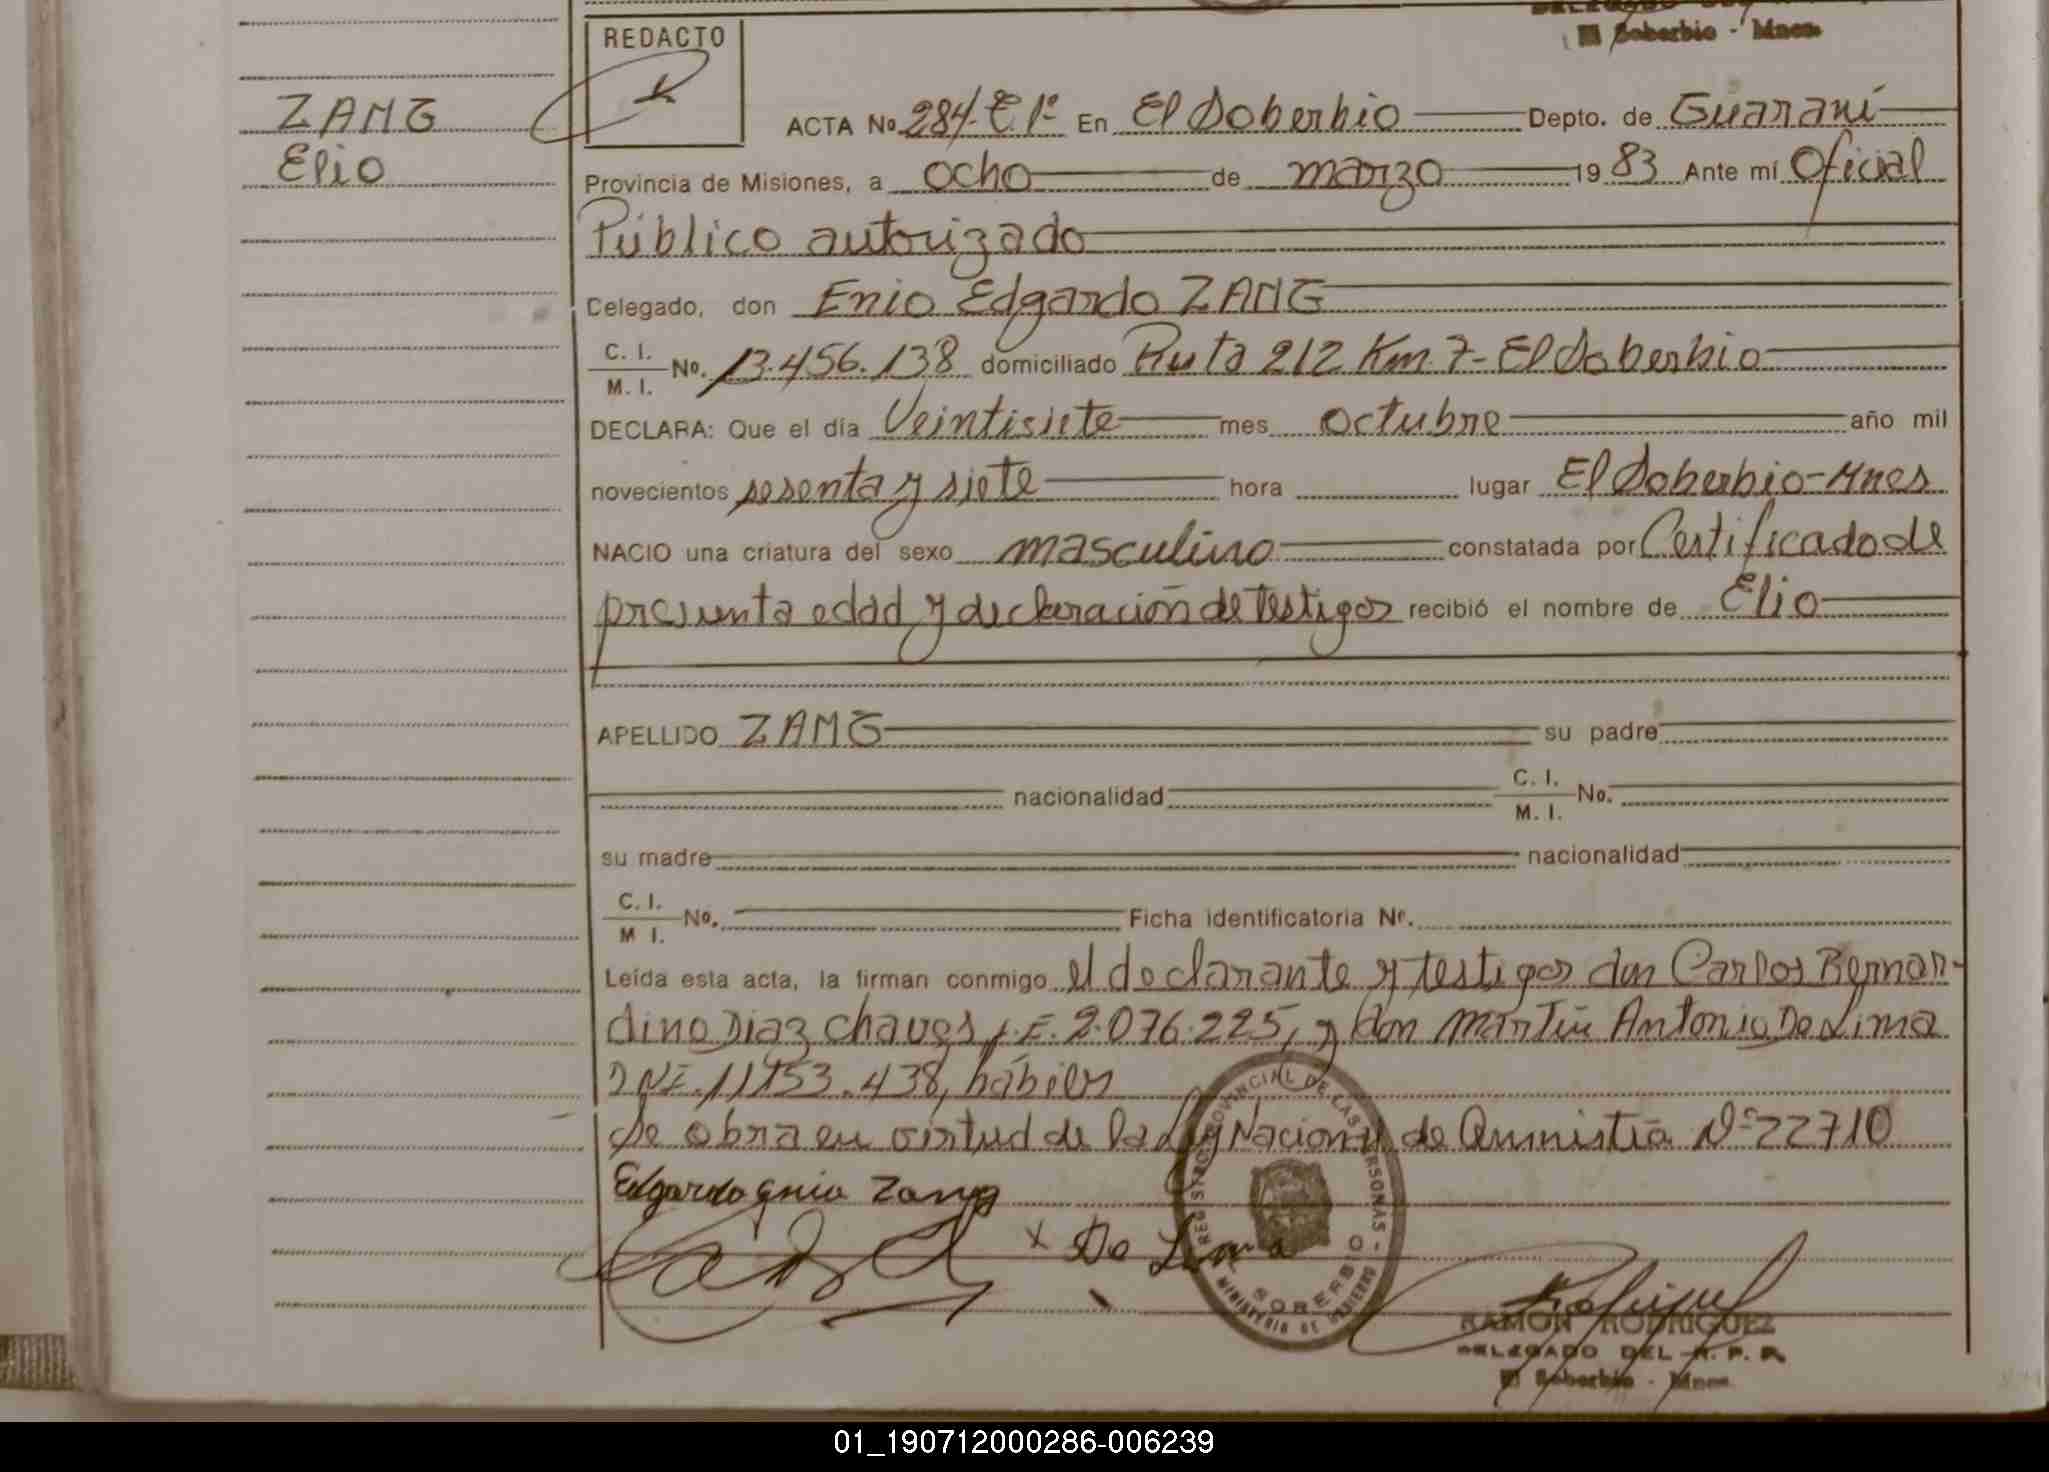 El Soberbio - Mnes.
REDACTO
ZANG
Elio
ACTA No 284-E 1º En El Soberbio Depto. de Guaraní
Provincia de Misiones, a ocho de marzo 19 83 Ante mí Oficial
Público autorizado
Celegado, don Enio Edgardo ZANG
C. I.
M. I. No. 13.456.138 domiciliado Ruta 212 Km 7- El Soberbio
DECLARA: Que el día Veintisiete mes octubre año mil
novecientos sesenta y siete hora lugar El Soberbio-Mnes
NACIO una criatura del sexo masculino constatada por Certificado de
presunta edad y declaración de testigos recibió el nombre de Elio
APELLIDO ZANG su padre
nacionalidad C. I.
M. I. No.
su madre nacionalidad
C. I.
M I. No. Ficha identificatoria Nº.
Leída esta acta, la firman conmigo el declarante y testigos don Carlos Bernar-
dino Diaz Chaves L.E. 2.076.225, y don Martin Antonio De Lima
DNI. 11.153.438, hábiles
Se obra en virtud de la Ley Nacional de Amnistía Nº 22710
Edgardo Enio Zang
x De Lima
REGISTRO PROVINCIAL DE LAS PERSONAS - MINISTERIO DE GOBIERNO
SOBERBIO
RAMON RODRIGUEZ
DELEGADO DEL R. P. P.
El Soberbio - Mnes
01_190712000286-006239